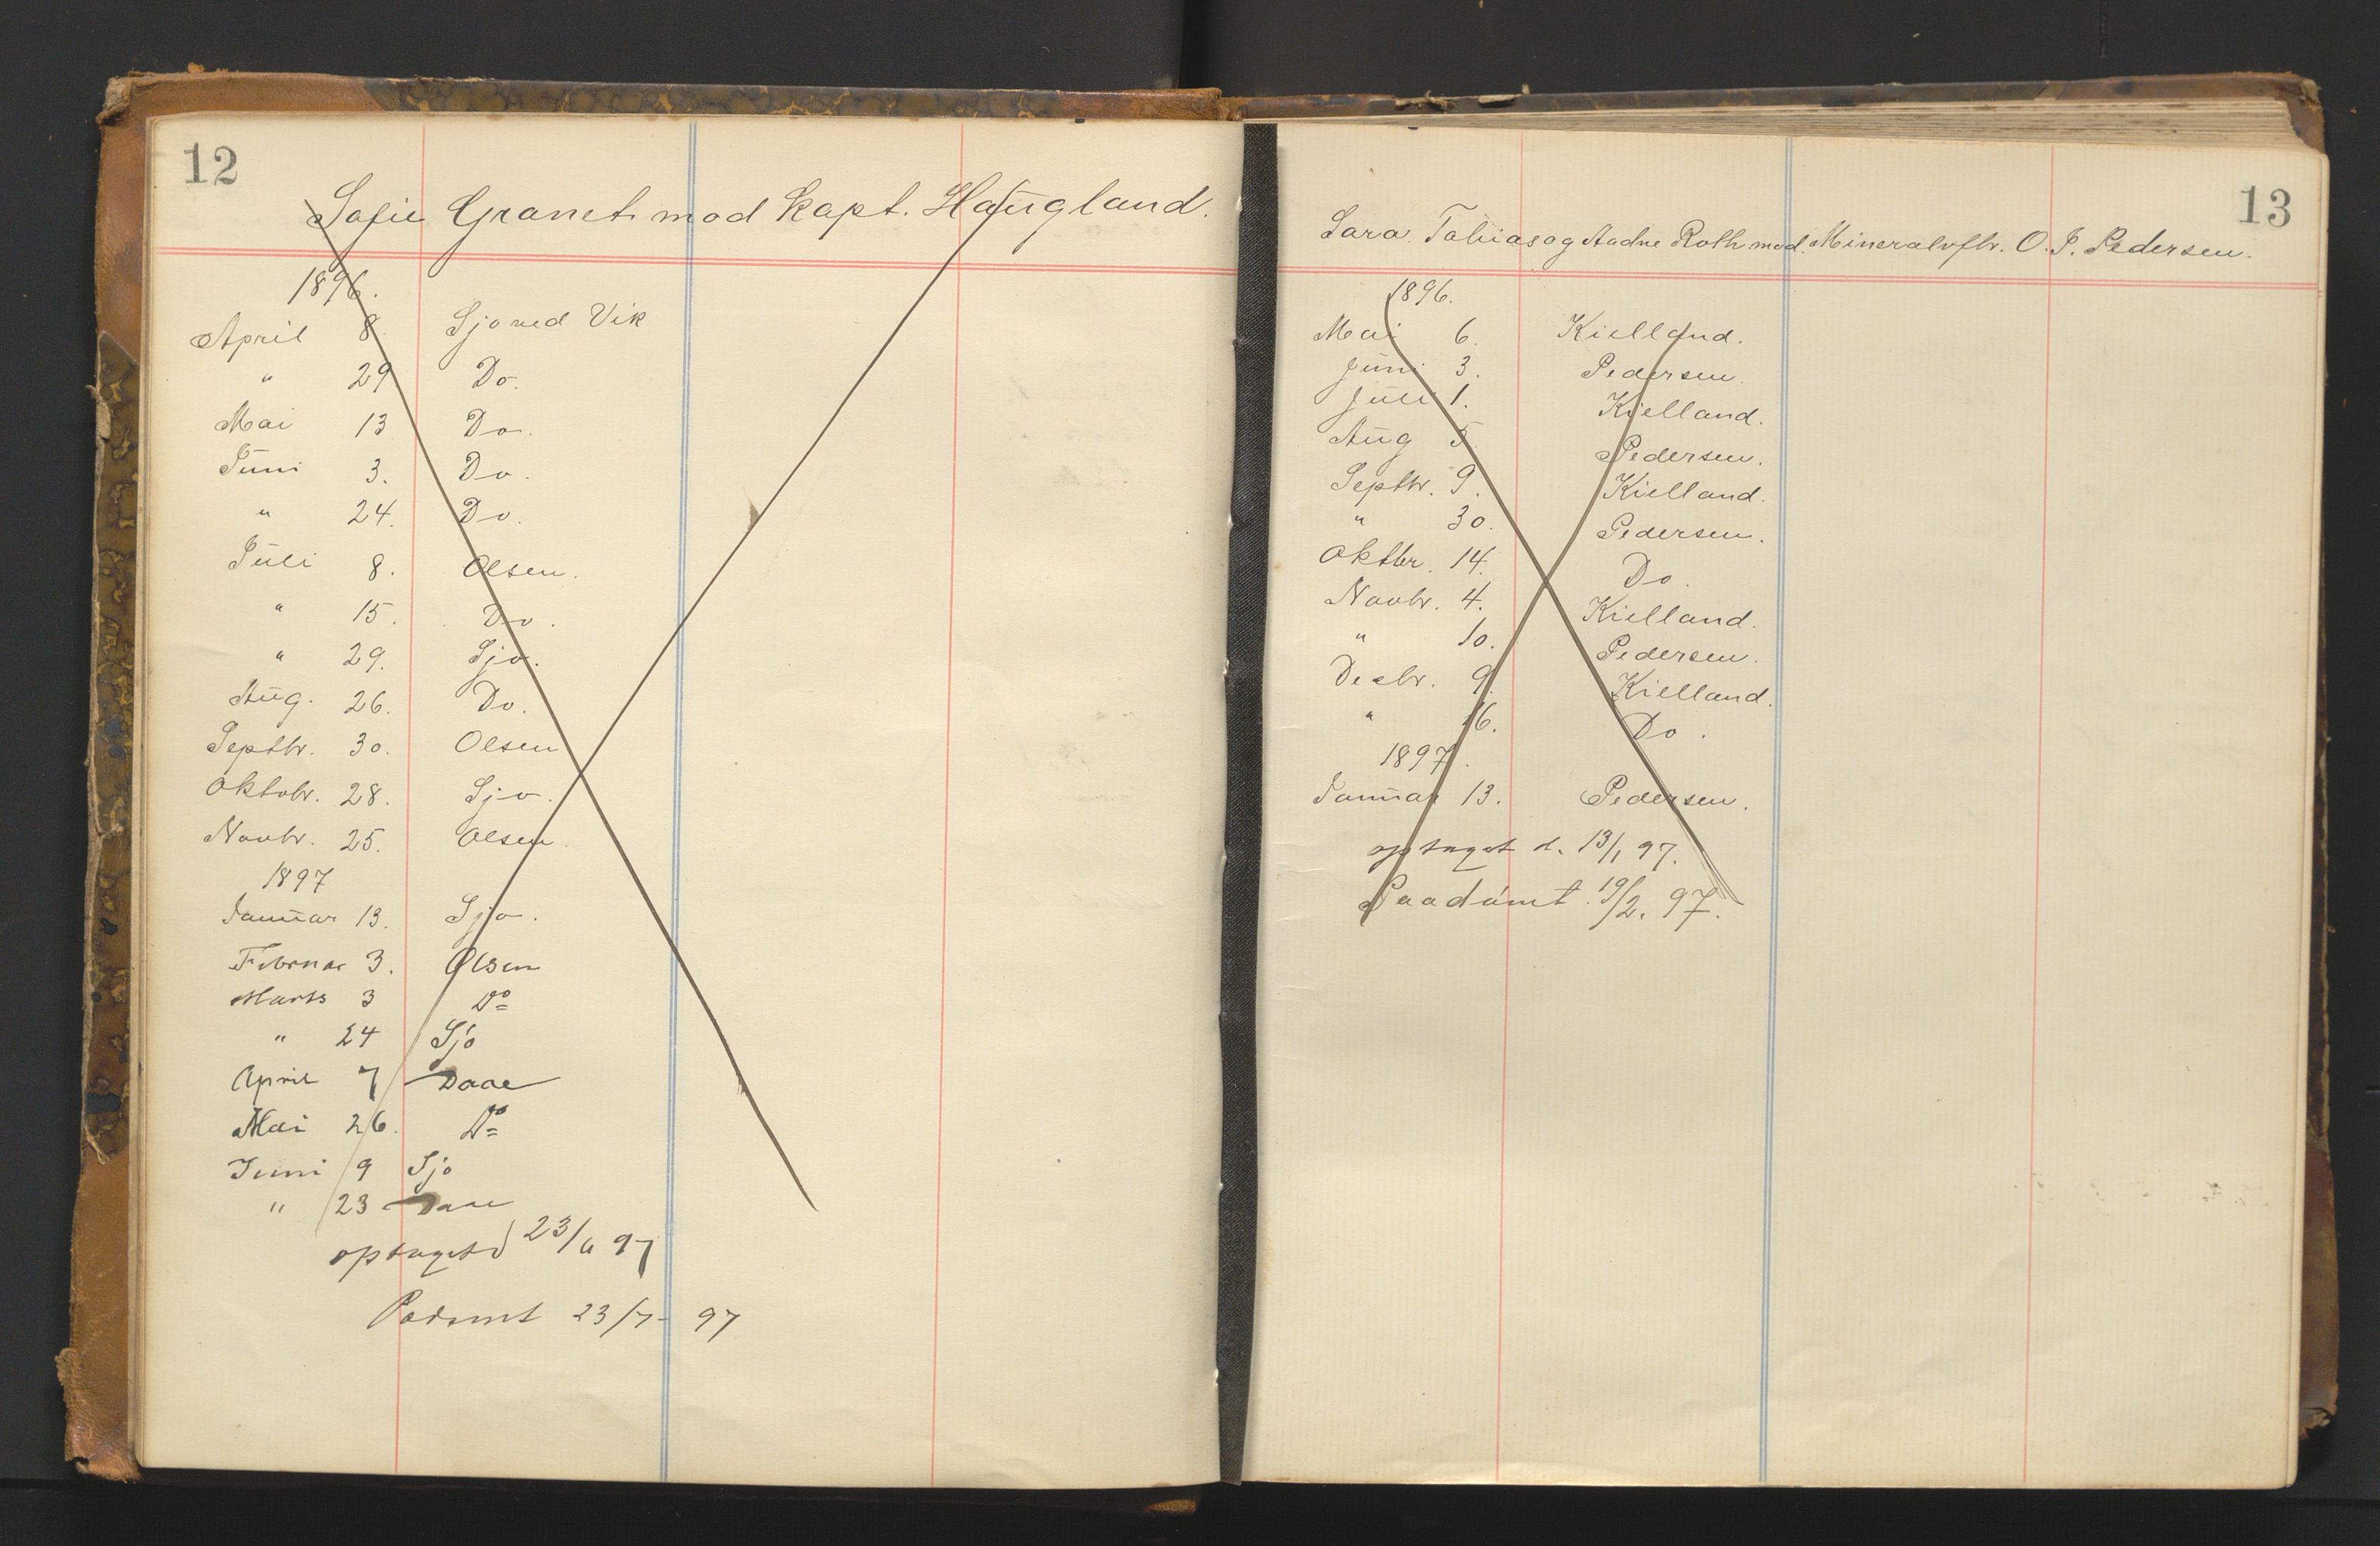 12
Sofie Granet mod Kapt. Haugland.
1896.
April 8. Sjo ved Vik
" 29. Do.
Mai 13 Do.
Juni 3. Do.
" 24. Do.
Juli 8. Olsen.
" 15. Do.
" 29. Sjo.
Aug. 26. Do.
Septbr. 30. Olsen
Oktobr. 28. Sjo.
Novbr. 25. Olsen.
1897
Januar 13. Sjo.
Februar 3. Olsen
Marts 3 Do
" 24 Sjo
April 7 Daae
Mai 26. Do
Juni 9 Sjo
" 23 Daae
optaget d 23/6 97
Padømt 23/7- 97
13
Sara. Tobias og Aadne Roth mod. O. J. Pedersen.
1896.
Mai 6. Kielland.
Juni 3. Pedersen.
Juli 1. Kielland.
Aug 5 Pedersen.
Septbr. 9. Kielland.
" 30. Pedersen.
Oktbr. 14. Do.
Novbr. 4. Kielland.
" 10. Pedersen.
Desbr. 9. Kielland.
" 16. Do.
1897.
Januar 13. Pedersen.
optaget d. 13/1 97.
Paadømt. 19/2. 97.